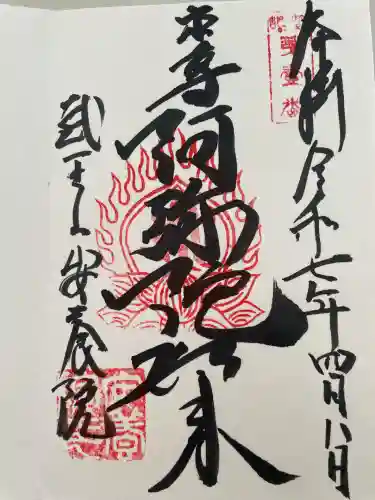 奉拝 令和七年四月八日
本尊 阿弥陀如来
武王山 安養院